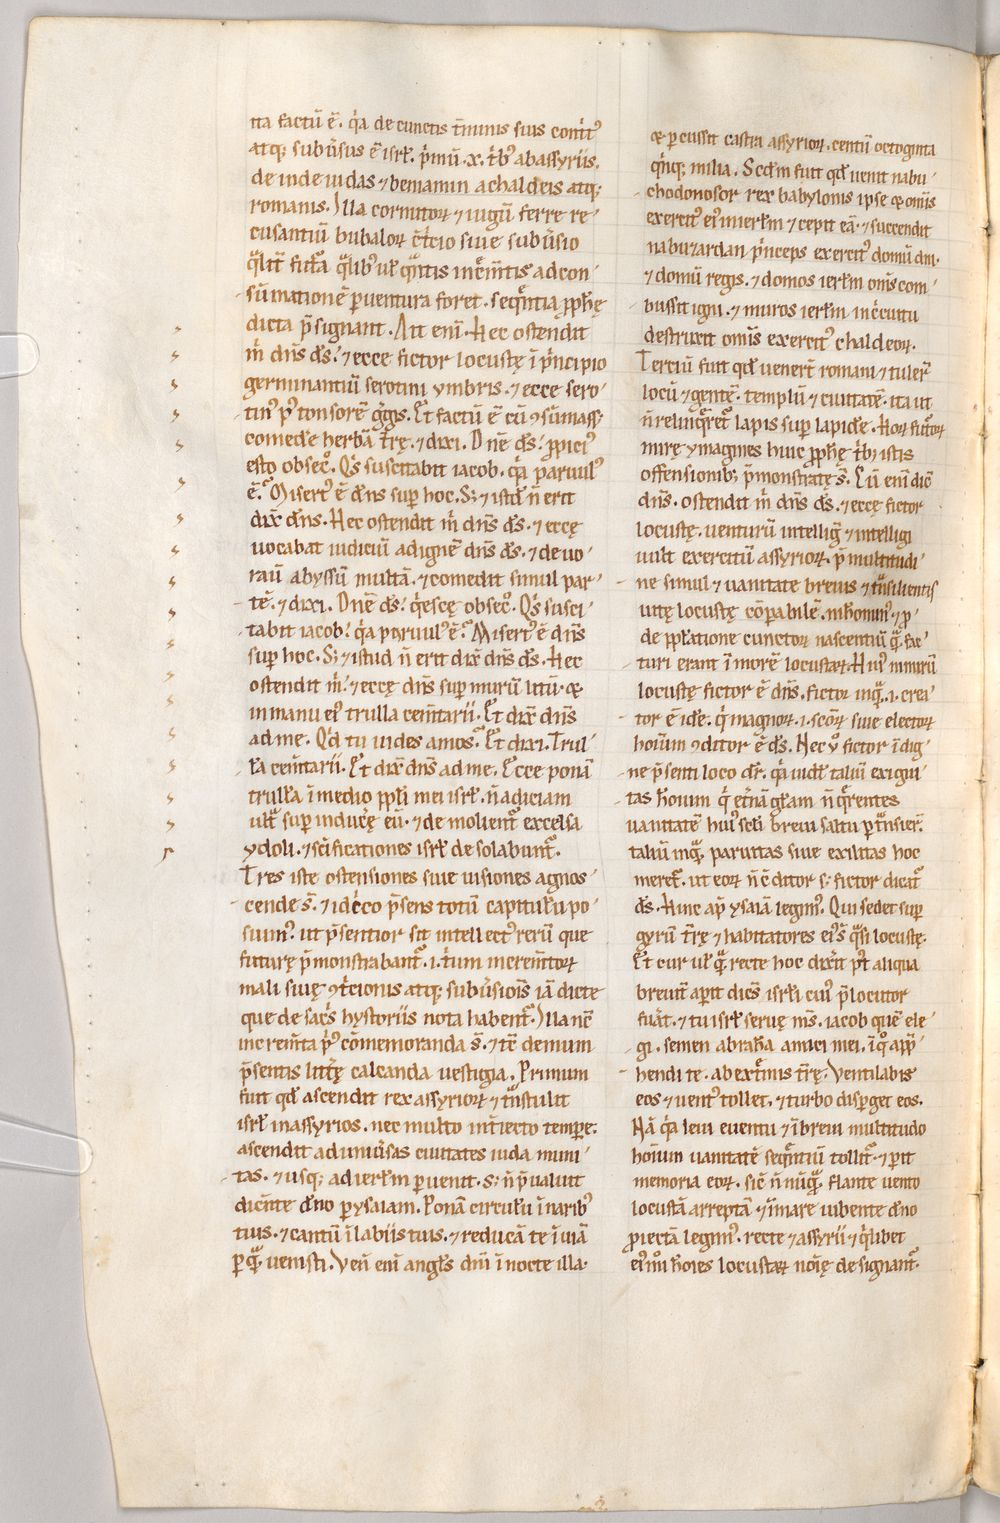 tta factū ē. q̇a de cunctis t̄minis suis cont͛t᷒
atq; subūsus ē isrł. p̄mū .x. t̄b᷒ ab assyriis.
de inde iudas ⁊ beniamin a chaldeis atq;
romanis. Illa cornutoꝝ ⁊ iugū ferre re
cusantiū bubaloꝝ c̄t͛cio siue subūsio
dicta p̄signant. Ait enī. Hec ostendit
m̄ dn̄s ds̄. ⁊ ecce fictor locustę ī p͛ncipio
germinantiū serotini ymbris. ⁊ ecce sero
tin᷒ p᷒ tonsorē g̃gis. Et factū ē cū ꝯsūmass;
comedꝰe herbā t̄rę. ⁊ dixi. Dn̄e ds̄. ꝓpici᷒
esto obsec̊. Q͛s suscitabit iacob. q̇a paruul᷒
ē. Misert᷒ ē dn̄s suꝑ hoc. S; ⁊ istđ n̄ erit
dix̄ dn̄s. Hec ostendit m̄ dn̄s ds̄. ⁊ eccę
uocabat iudiciū ad ignē dn̄s ds̄. ⁊ deuo
rau̅ abyssū multā. ⁊ comedit simul par
tē. ⁊ dixi. Dn̄e ds̄. q͛escę obsec̊. Q͛s susci
tabit iacob. q̇a paruul᷒ ē. Misert᷒ ē dn̄s
suꝑ hoc. S; ⁊ istud n̄ erit dix̄ dn̄s ds̄. Hec
ostendit m̄. ⁊ eccę dn̄s suꝑ murū litū. ⁊
in manu ei᷒ trulla cem̄tarii. Et dix̄ dn̄s
ad me. Q͛d tu uides amos. Et dixi. Trul
łā cem̄tarii. Et dix̄ dn̄s ad me. Ecce ponā
trulłā ī medio ppłi mei isrł. n̄ adiciam
ult͛ suꝑ inducꝰę eū. ⁊ demolient᷑ excelsa
ydoli. ⁊ sc̄ificationes isrł desolabunt᷑.
Tres iste ostensiones siue uisiones agnos
cende s̄. ⁊ idc͛co p̄sens totū capitulū po
suim᷒. ut p̄sentior sit intellect᷒ rerū que
futurę p̄monstrabant᷑ .i. t͛um merem̄toꝝ
mali siuę ꝯt͛cionis atq; subūsiois̄ iā dicte
que de sac͛s hystoriis nota habent᷑. Illa nc̄
increm̄ta p͛᷒ cōmemoranda s̄. ⁊ tc̄ demum
p̄sentis litt͛ę calcanda uestigia. Primum
fuit qđ ascendit rex assyrioꝝ ⁊ t͛nstulit
isrł in assyrios. nec multo int̄iecto tempe.
ascendit ad uniūsas ciuitates iuda muni
tas. ⁊ usq; ad ierłm ꝑuenit. s; n̄ p̄ualuit
dicn̄te dn̄o ꝑ ysaiam. Ponā circulū ī narib᷒
tuis. ⁊ camū ī labiis tuis. ⁊ reducā te ī uiā
ꝑ q̃. uenisti. Ven̄ enī angł͛s dn̄i ī nocte illa.
⁊ ꝑcussit castra assyrioꝝ. centū octoginta
q͛nq; milia. Scđm fuit qđ uenit nabu
chodonosor rex babylonis ipse ⁊ om̄is
exercit᷒ ei᷒ in ierłm ⁊ cepit eā. ⁊ succendit
nabuzardan p͛nceps exercit᷒ domū dn̄i.
⁊ domū regis. ⁊ domos ierłm om̄s com
bussit igni. ⁊ muros ierłm in c͛cuitu
destruxit omīs exercit᷒ chaldeoꝝ.
Terciū fuit qđ venert̄ romani ⁊ tuler̄
locū ⁊ gentē. templū ⁊ ciuitatē. ita ut
n̄ relinq͛ret᷑ lapis suꝑ lapidē. Hoꝝ futoꝝ
mire ymagines huic ꝓphę t͛b; istis
offensionib; p̄monstratę s̄. Cū enī dic̄
dn̄s. ostendit m̄ dn̄s ds̄. ⁊ eccę fictor
locustę. venturū intellig̅ ⁊ intelligi
uult exercitū assyrioꝝ. p̄ multitudi
ne simul ⁊ uanitate breuis ⁊ t͛nsilientis
uitę locustę cōꝑabilē.
de ꝓp͛atione cunctoꝝ nascentiū q̃. fac
turi erant ī morē locustaꝝ. Hui᷒ mirū
locustę fictor ē dn̄s. fictor inq̃ .i. crea
tor ē idē. q͛ magnoꝝ .i. sc̄oꝝ siue electoꝝ
hoīum ꝯditor ē ds̄. Hec ů fictor ī dig
ne p̄senti loco dr̄. q̇a uidł; taliū exigui
tas hōium q͛ et̄nā głam n̄ q͛rentes
uanitatē hui᷒ sc̄li breui saltu ꝑt͛nsier̄.
taliū inq̃. paruitas siue exilitas hoc
meret᷑. ut eoꝝ n̄ c̄ditor s; fictor dicat᷑
ds̄. Hinc ap̄ ysaiā legim᷒. Qui sedet suꝑ
gyrū t̄rę ⁊ habitatores ei᷒ s̄ q̃si locustę.
Et cur ul̄ q̃. recte hoc dixit p᷒t aliqua
breuit̄ aꝑit dicēs isrłi cui᷒ p̄locutor
fuāt. ⁊ tu isrł seruę ms̄. iacob quē ele
gi. semen abrahā amici mei. ī q̊ app̄
hendi te. ab ext͛mis t̄rę. Ventilabis
eos ⁊ uent᷒ tollet. ⁊ turbo disꝑget eos.
Nā q̇a leui euentu ⁊ ī breui multitudo
hoīum uanitatē seq̄ntiū tollit᷑. ⁊ ꝑit
memoria eoꝝ. sic̄ n̄ nūq̃. flante uento
locustā arreptā ⁊ ī mare iubente dn̄o
ꝓiectā legim᷒. recte ⁊ assyrii ⁊ q͛libet
ei᷒m̊i hōies locustaꝝ noīę designant᷑.